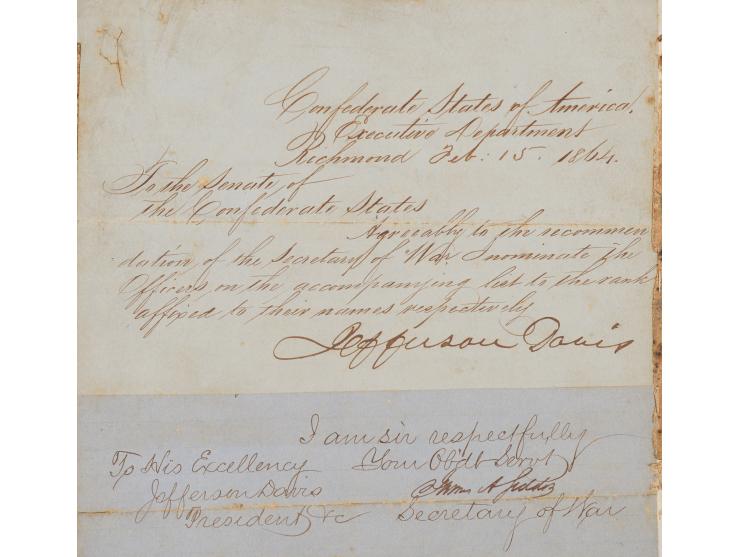 Confederate States of America.
Executive Department
Richmond Feb. 15. 1864.
To the Senate of
the Confederate States
Agreeably to the recommen
dation, of the Secretary of War I nominate the
Officers, on the accompanying list to the rank
affixed to their names respectively
Jefferson Davis
I am sir respectfully
To His Excellency Your Obdt Servt
Jefferson Davis James A Seddon
President &c Secretary of War